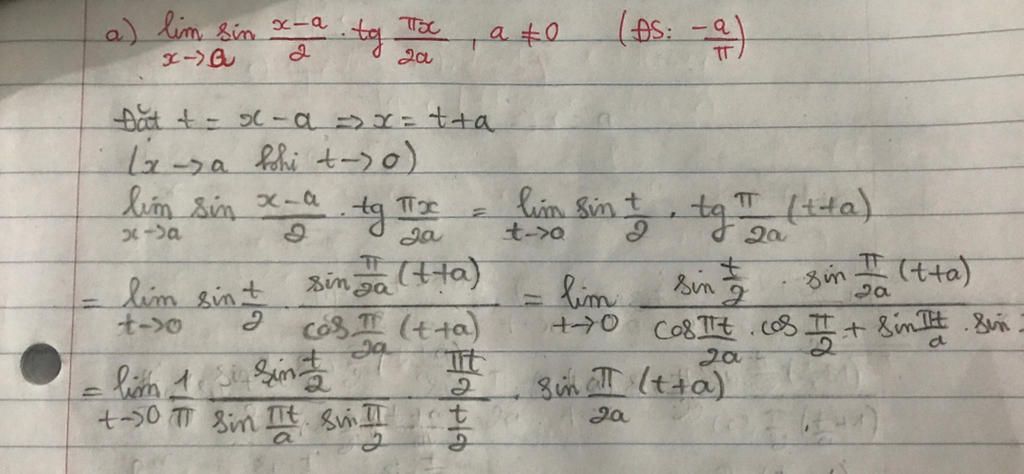 a) lim x→a sin (x-a)/2 . tg πx/2a , a ≠ 0 (ĐS: -a/π)
Đặt t = x-a => x = t+a
(x→a khi t→0)
lim x→a sin (x-a)/2 . tg πx/2a = lim t→0 sin t/2 . tg π/2a (t+a)
= lim t→0 sin t/2 . (sin π/2a (t+a))/(cos π/2a (t+a)) = lim t→0 (sin t/2 . sin π/2a (t+a))/(cos πt/2a . cos π/2 + sin πt/a . sin
= lim t→0 1/π (sin t/2)/(sin πt/a . sin π/2) . (πt/2)/(t/2) . sin π/2a (t+a)